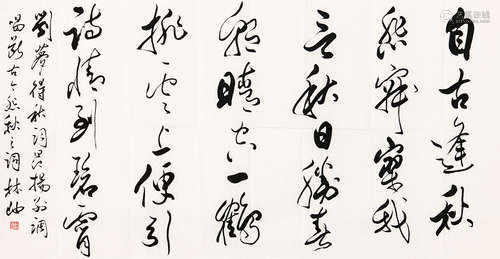 自古逢秋
悲寂寥我
言秋日勝春
朝晴空一鶴
排雲上便引
詩情到碧霄
劉夢得秋詞昂揚
古今悲秋之調 林岫